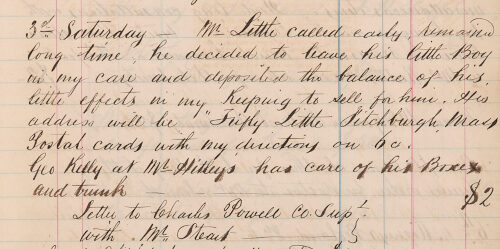 3rd Saturday — Mr Little called early, remained
long time, he decided to leave his little Boy
in my care and deposited the balance of his
little effects in my keeping to sell for him. His
address will be "Fifty Little Fitchburgh, Mass
Postal cards with my directions on bo.
Geo Kelly at Mr Hitley's has care of his Boxes
and trunk — $2
Letter to Charles Powell Co. Supt.
with Mr Steart